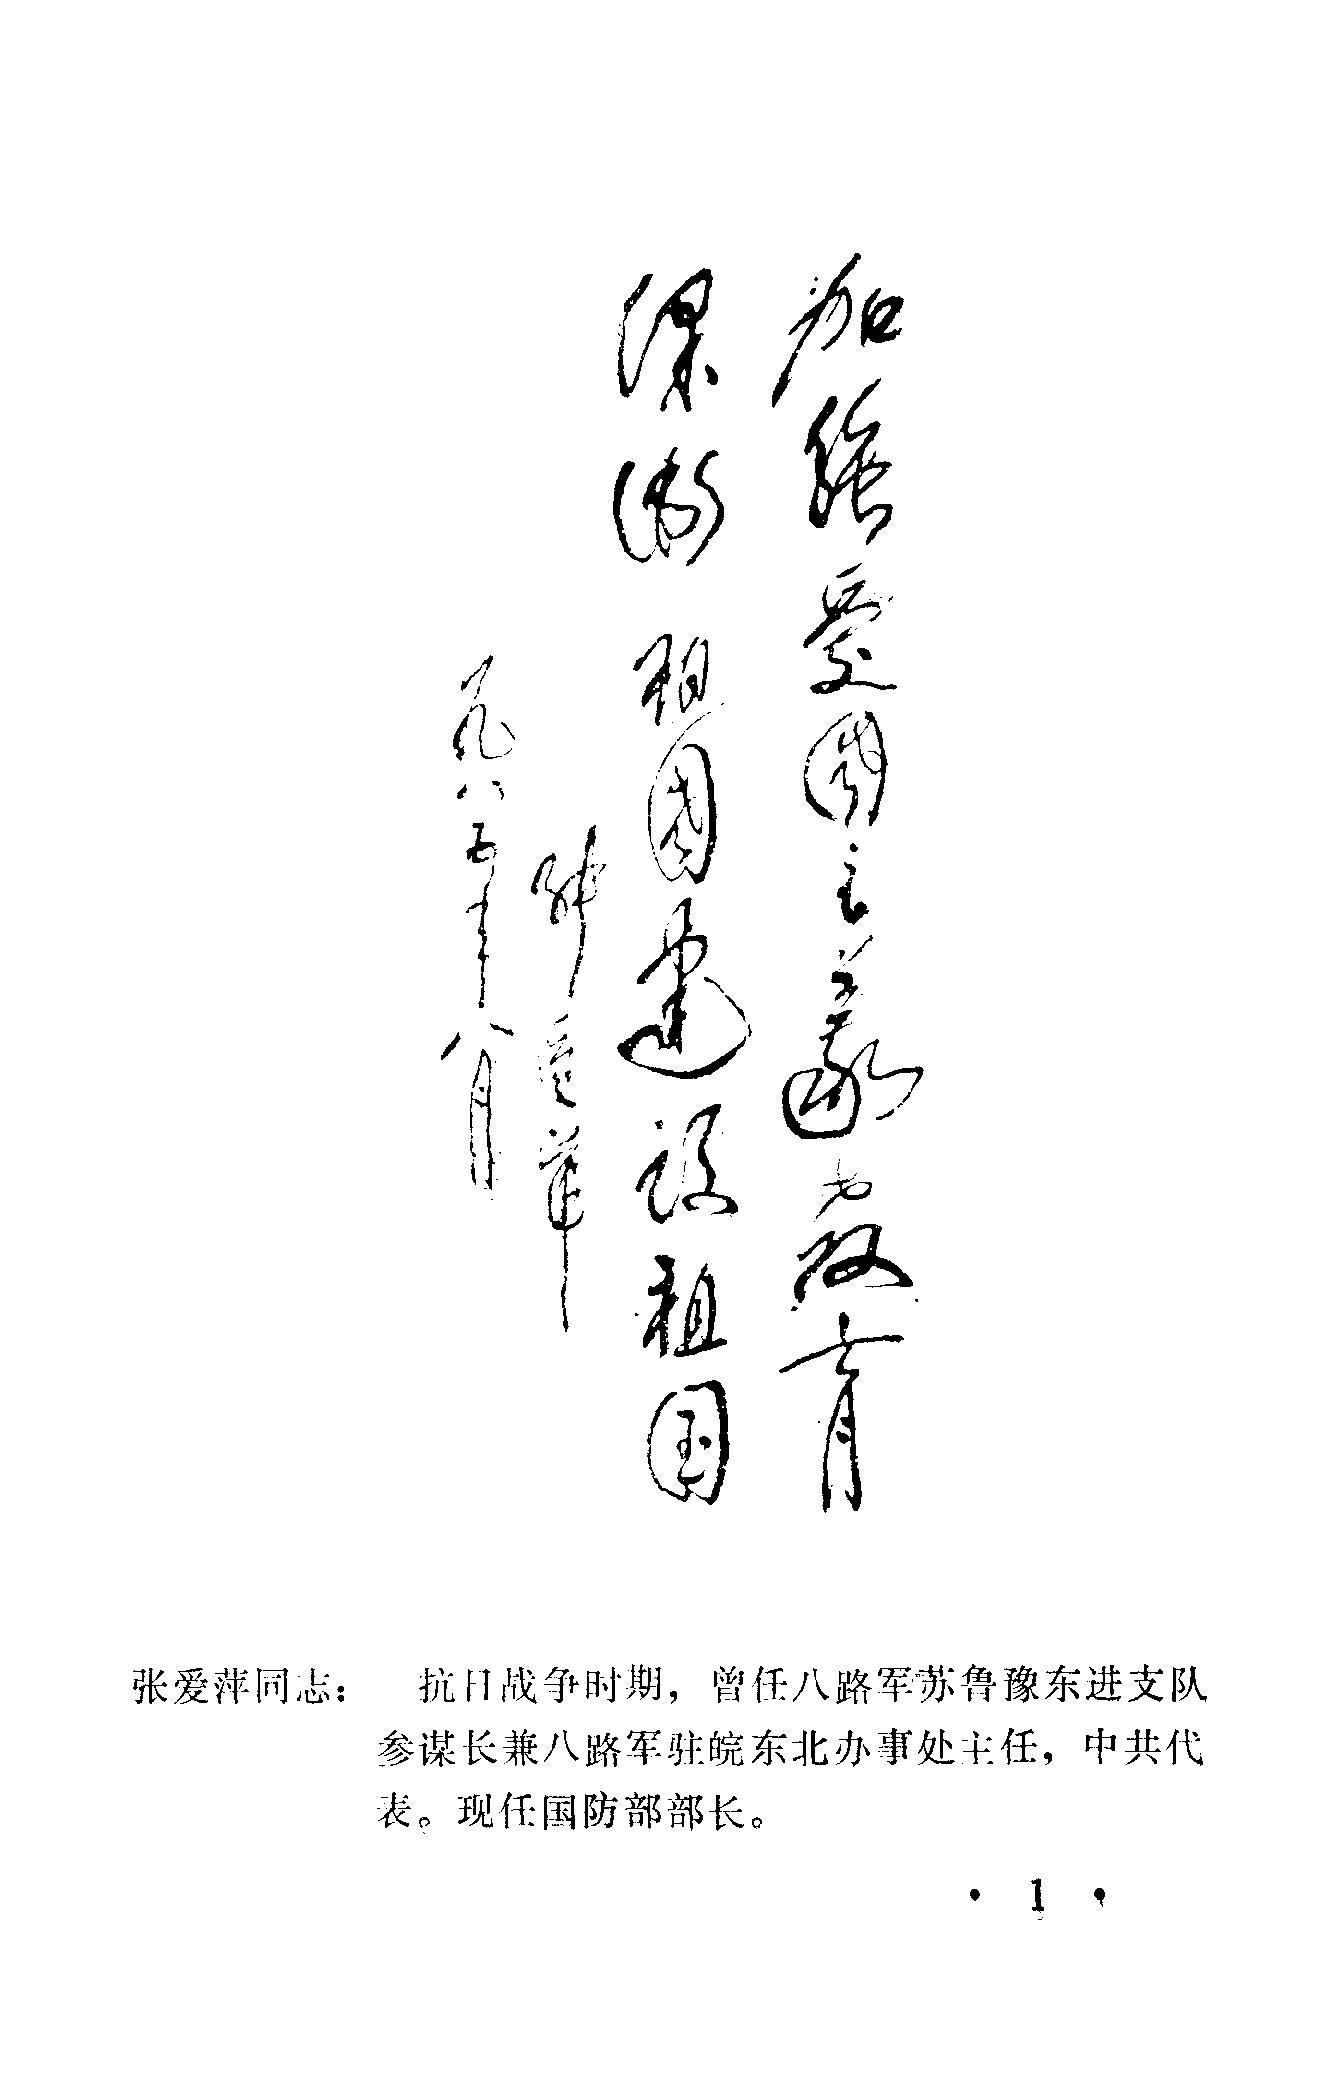 加强爱国主义教育
保衛祖國建设祖国
张爱萍
一九八五年八月
张爱萍同志： 抗日战争时期，曾任八路军苏鲁豫东进支队
参谋长兼八路军驻皖东北办事处主任，中共代
表。现任国防部部长。
• 1 •